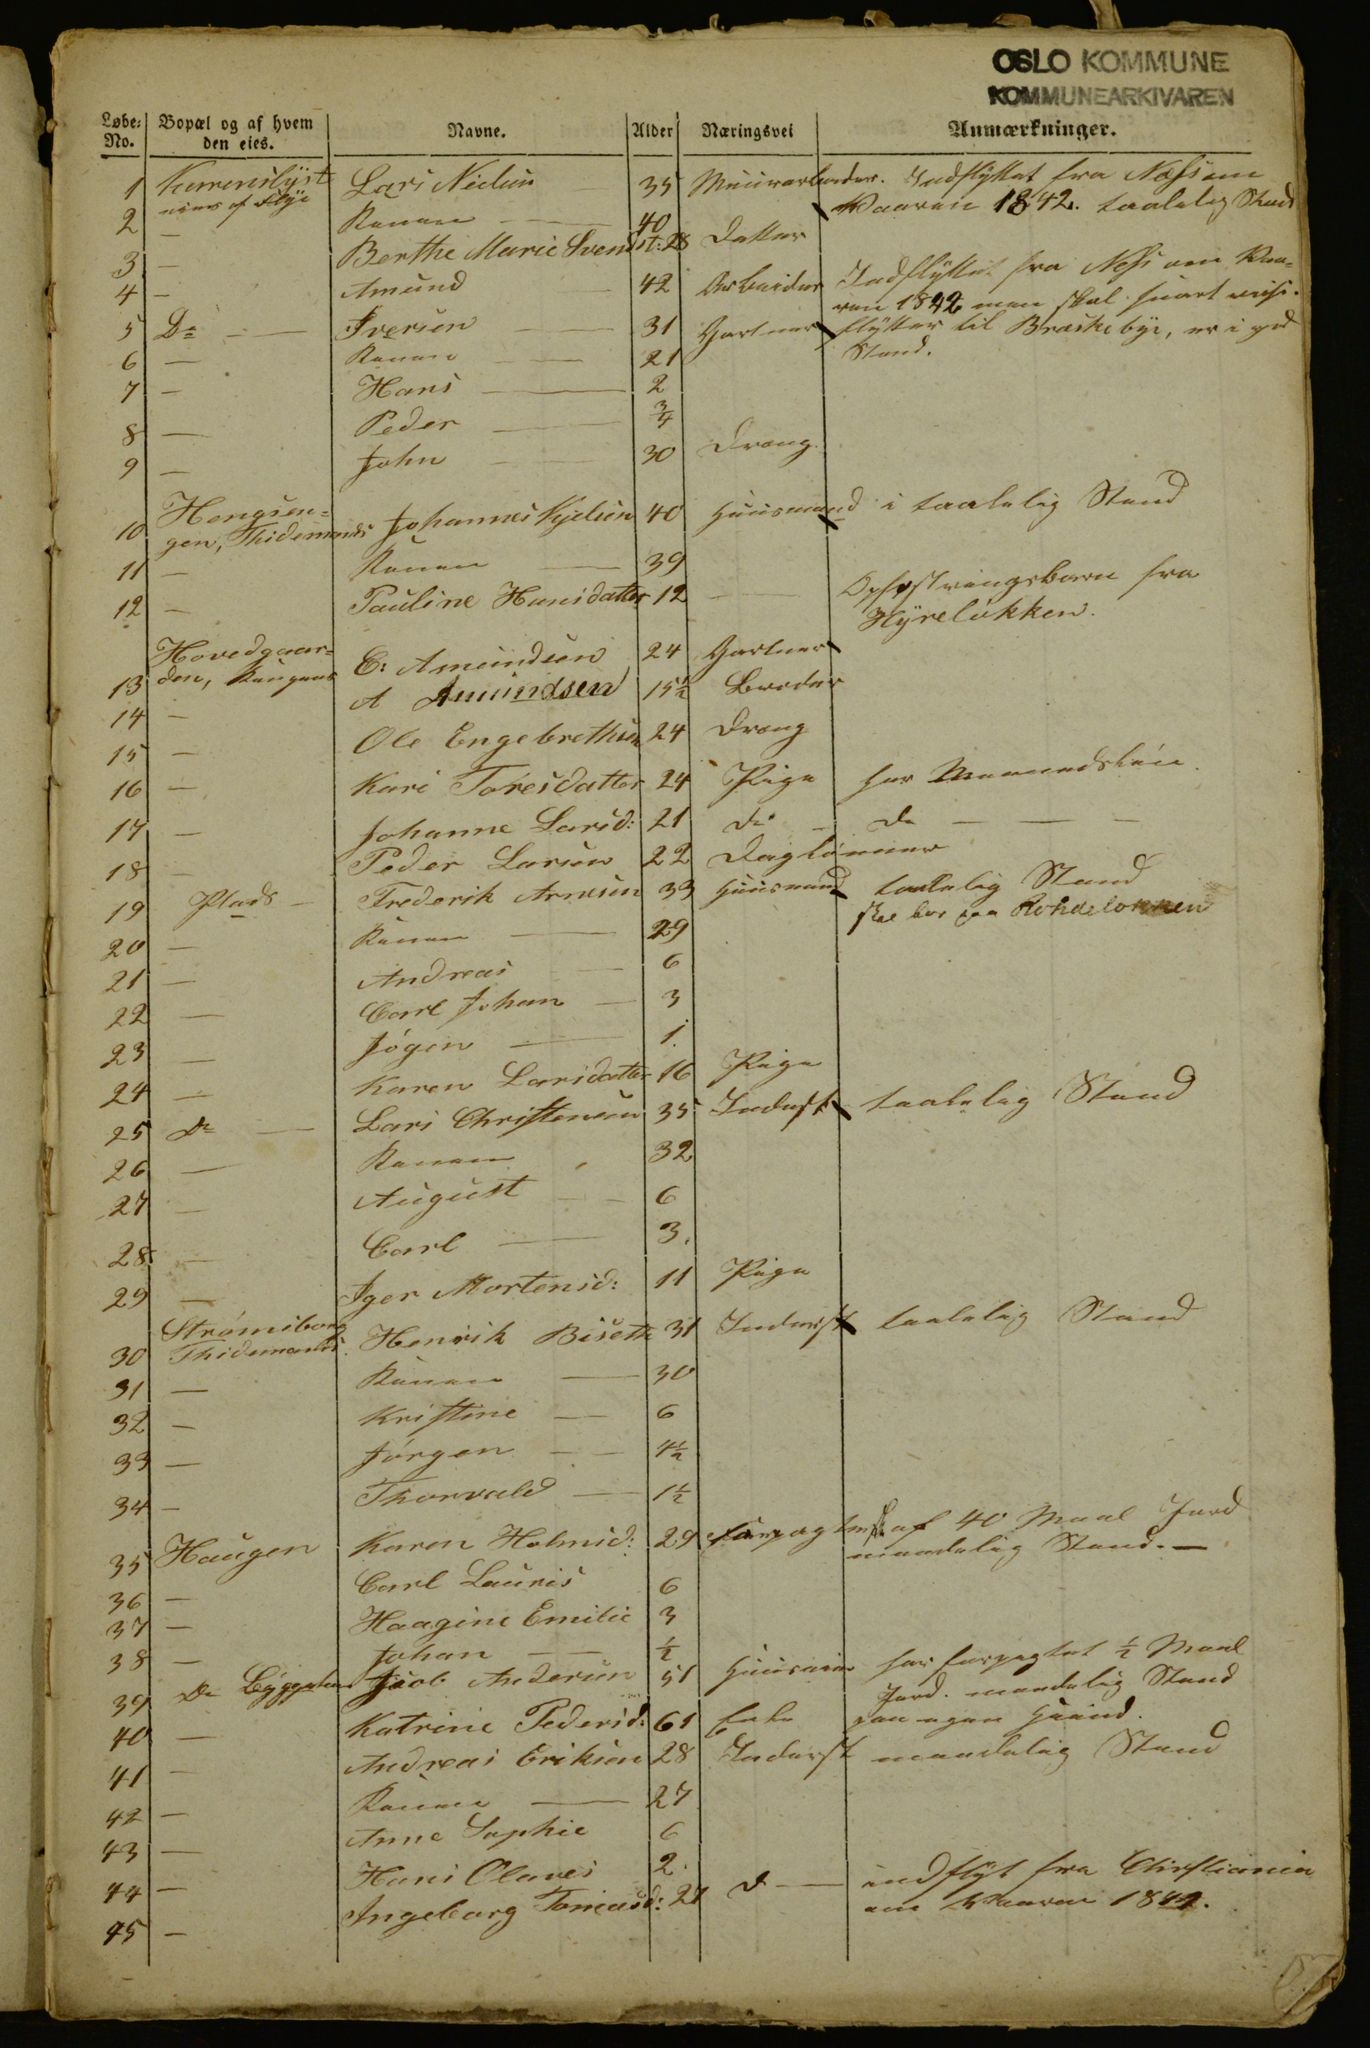 OSLO KOMMUNE
KOMMUNEARKIVAREN
Løbe-No. Bopæl og af hvem den eies. Navne. Alder Næringsvei Anmærkninger.
1 Karrenslyst Lars Nielsen 35 Muurarbeider. Indflyttet fra Næss om
2 eies af Konen 40 Vaaren 1842. taalelig Stand
3 — Berthe Marie Svendsd: 28 Datter
4 — Amund 42 Arbeider Indflyttet fra Næss om Vaa-
ren 1842 men skal snart
5 Do — Iversen 31 Gartner flytter til Bræskebye, er i god
6 — Konen 21 Stand.
7 — Hans 2
8 — Peder 3/4
9 — John 30 Dreng
10 Hengsen-
gen, Thidemands Johannes Kjelsen 40 Huusmand i taalelig Stand
11 — Konen 39
12 — Pauline Hansdatter 12 — Opfostringsbarn fra
Hyreløkken.
13 Hovedgaar-
den, E: Amundsen 24 Gartner
14 — A Amundsen 15½ Broder
15 — Ole Engebrethsen 24 Dreng
16 — Kari Toresdatter 24 Pige har Maanedsløn.
17 — Johanne Larsd: 21 do — do —
18 — Peder Larsen 22 Daglønner
19 Plads — Frederik Arnesen 33 Huusmand taalelig Stand
skal bo paa Rohdeløkken
20 — Konen 29
21 — Andreas 6
22 — Carl Johan 3
23 — Jögen 1
24 — Karen Larsdatter 16 Pige
25 Do — Lars Christensen 35 Inderst taalelig Stand
26 — Konen 32
27 — August 6
28 — Carl 3.
29 — Iger Mortensd: 11 Pige
30 Strømsborg
Thidemands Henrik Biseth 31 Inderst taalelig Stand
31 — Konen 30
32 — Kristine 6
33 — Jørgen 4½
34 — Thorvald 1½
35 Haugen Karen Holmsd: 29 Forpagterske af 40 Maal Jord
maadelig Stand. —
36 — Carl Lauris 6
37 — Haagine Emilie 3
38 — Johan ½
39 Do Jacob Andersen 51 har forpagtet ½ Maal
Jord. maadelig Stand
40 — Katrine Pedersd: 61 Enke paa egen Haand.
41 — Andreas Eriksen 28 Inderst maadelig Stand
42 — Konen 27
43 — Anne Sophie 6
44 — Hans Olaves 2.
45 — Ingeborg Tomasd: 21 D — indflyt fra Christiania
om Vaaren 1842.